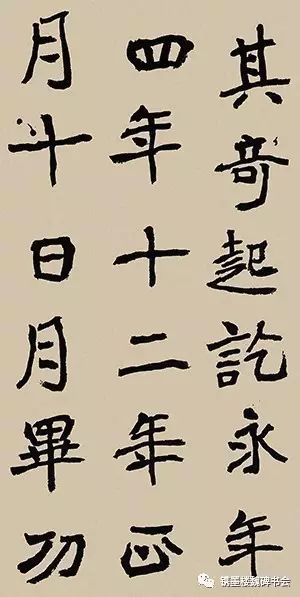 其竒起訖永年
四年十二年正
月十日月畢功
墨楼魏碑书会